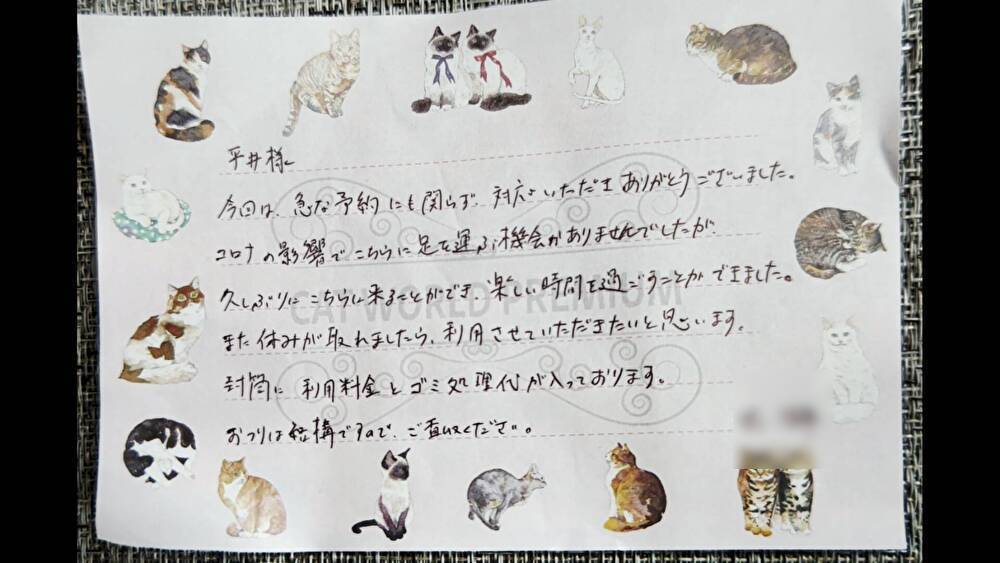 平井様
今回は、急な予約にも関らず、対応いただきありがとうございました。
コロナの影響でこちらに足を運ぶ機会がありませんでしたが、
久しぶりにこちらに来ることができ、楽しい時間を過ごすことができました。
また休みが取れましたら、利用させていただきたいと思います。
封筒に利用料金とゴミ処理代が入っております。
おつりは結構ですので、ご査収ください。
CAT WORLD PREMIUM